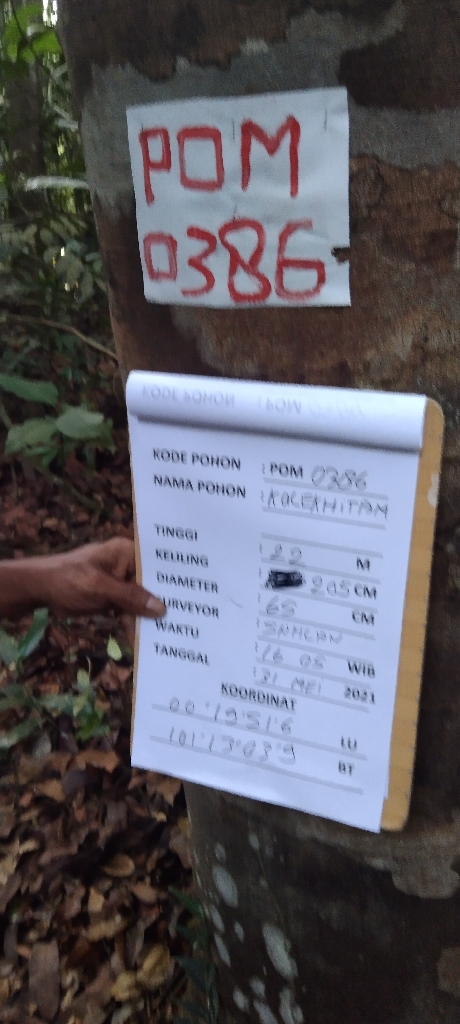 POM
0386
KODE POHON : POM 0386
NAMA POHON : KOLEKHITAM
TINGGI : 22 M
KELILING : 205 CM
DIAMETER : 65 CM
SURVEYOR : SAHLAN
WAKTU : 16 05 WIB
TANGGAL : 31 MEI 2021
KOORDINAT
00°19'51'6 LU
101°13'03'9 BT